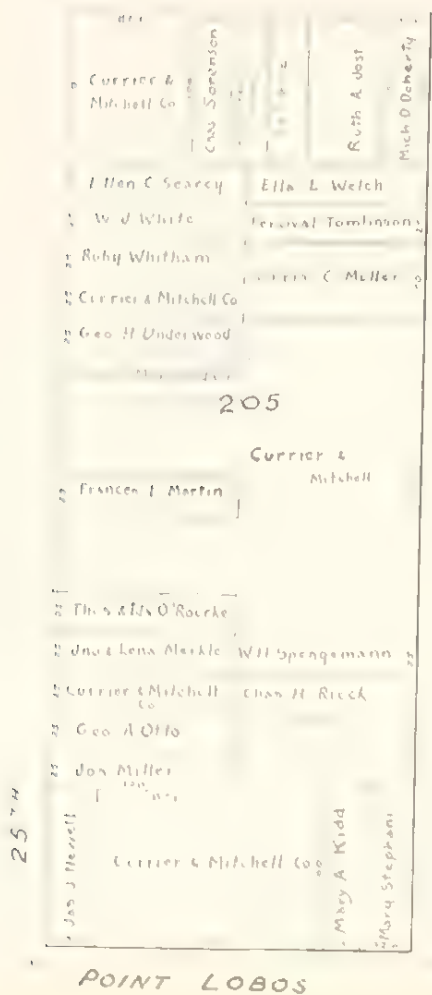 Currier &
Mitchell Co
Chas Sorenson
Ruth A Jost
Mich D Doherty
Ellen C Searcy
Ella L Welch
W J White
Percival Tomlinson
25
Ruby Whitham
25
C Miller
25
Currier & Mitchell Co
25
Geo H Underwood
205
Currier &
Mitchell
25
Frances E Martin
25
O'Rourke
25
Jno & Lena Merkle
W H Spengemann
25
25
Currier & Mitchell
Co
Chas H Rieck
25
Geo A Otto
25
Jos Miller
120
Jos J Herrell
Currier & Mitchell Co
Mary A Kidd
Mary Stephani
25TH
POINT LOBOS